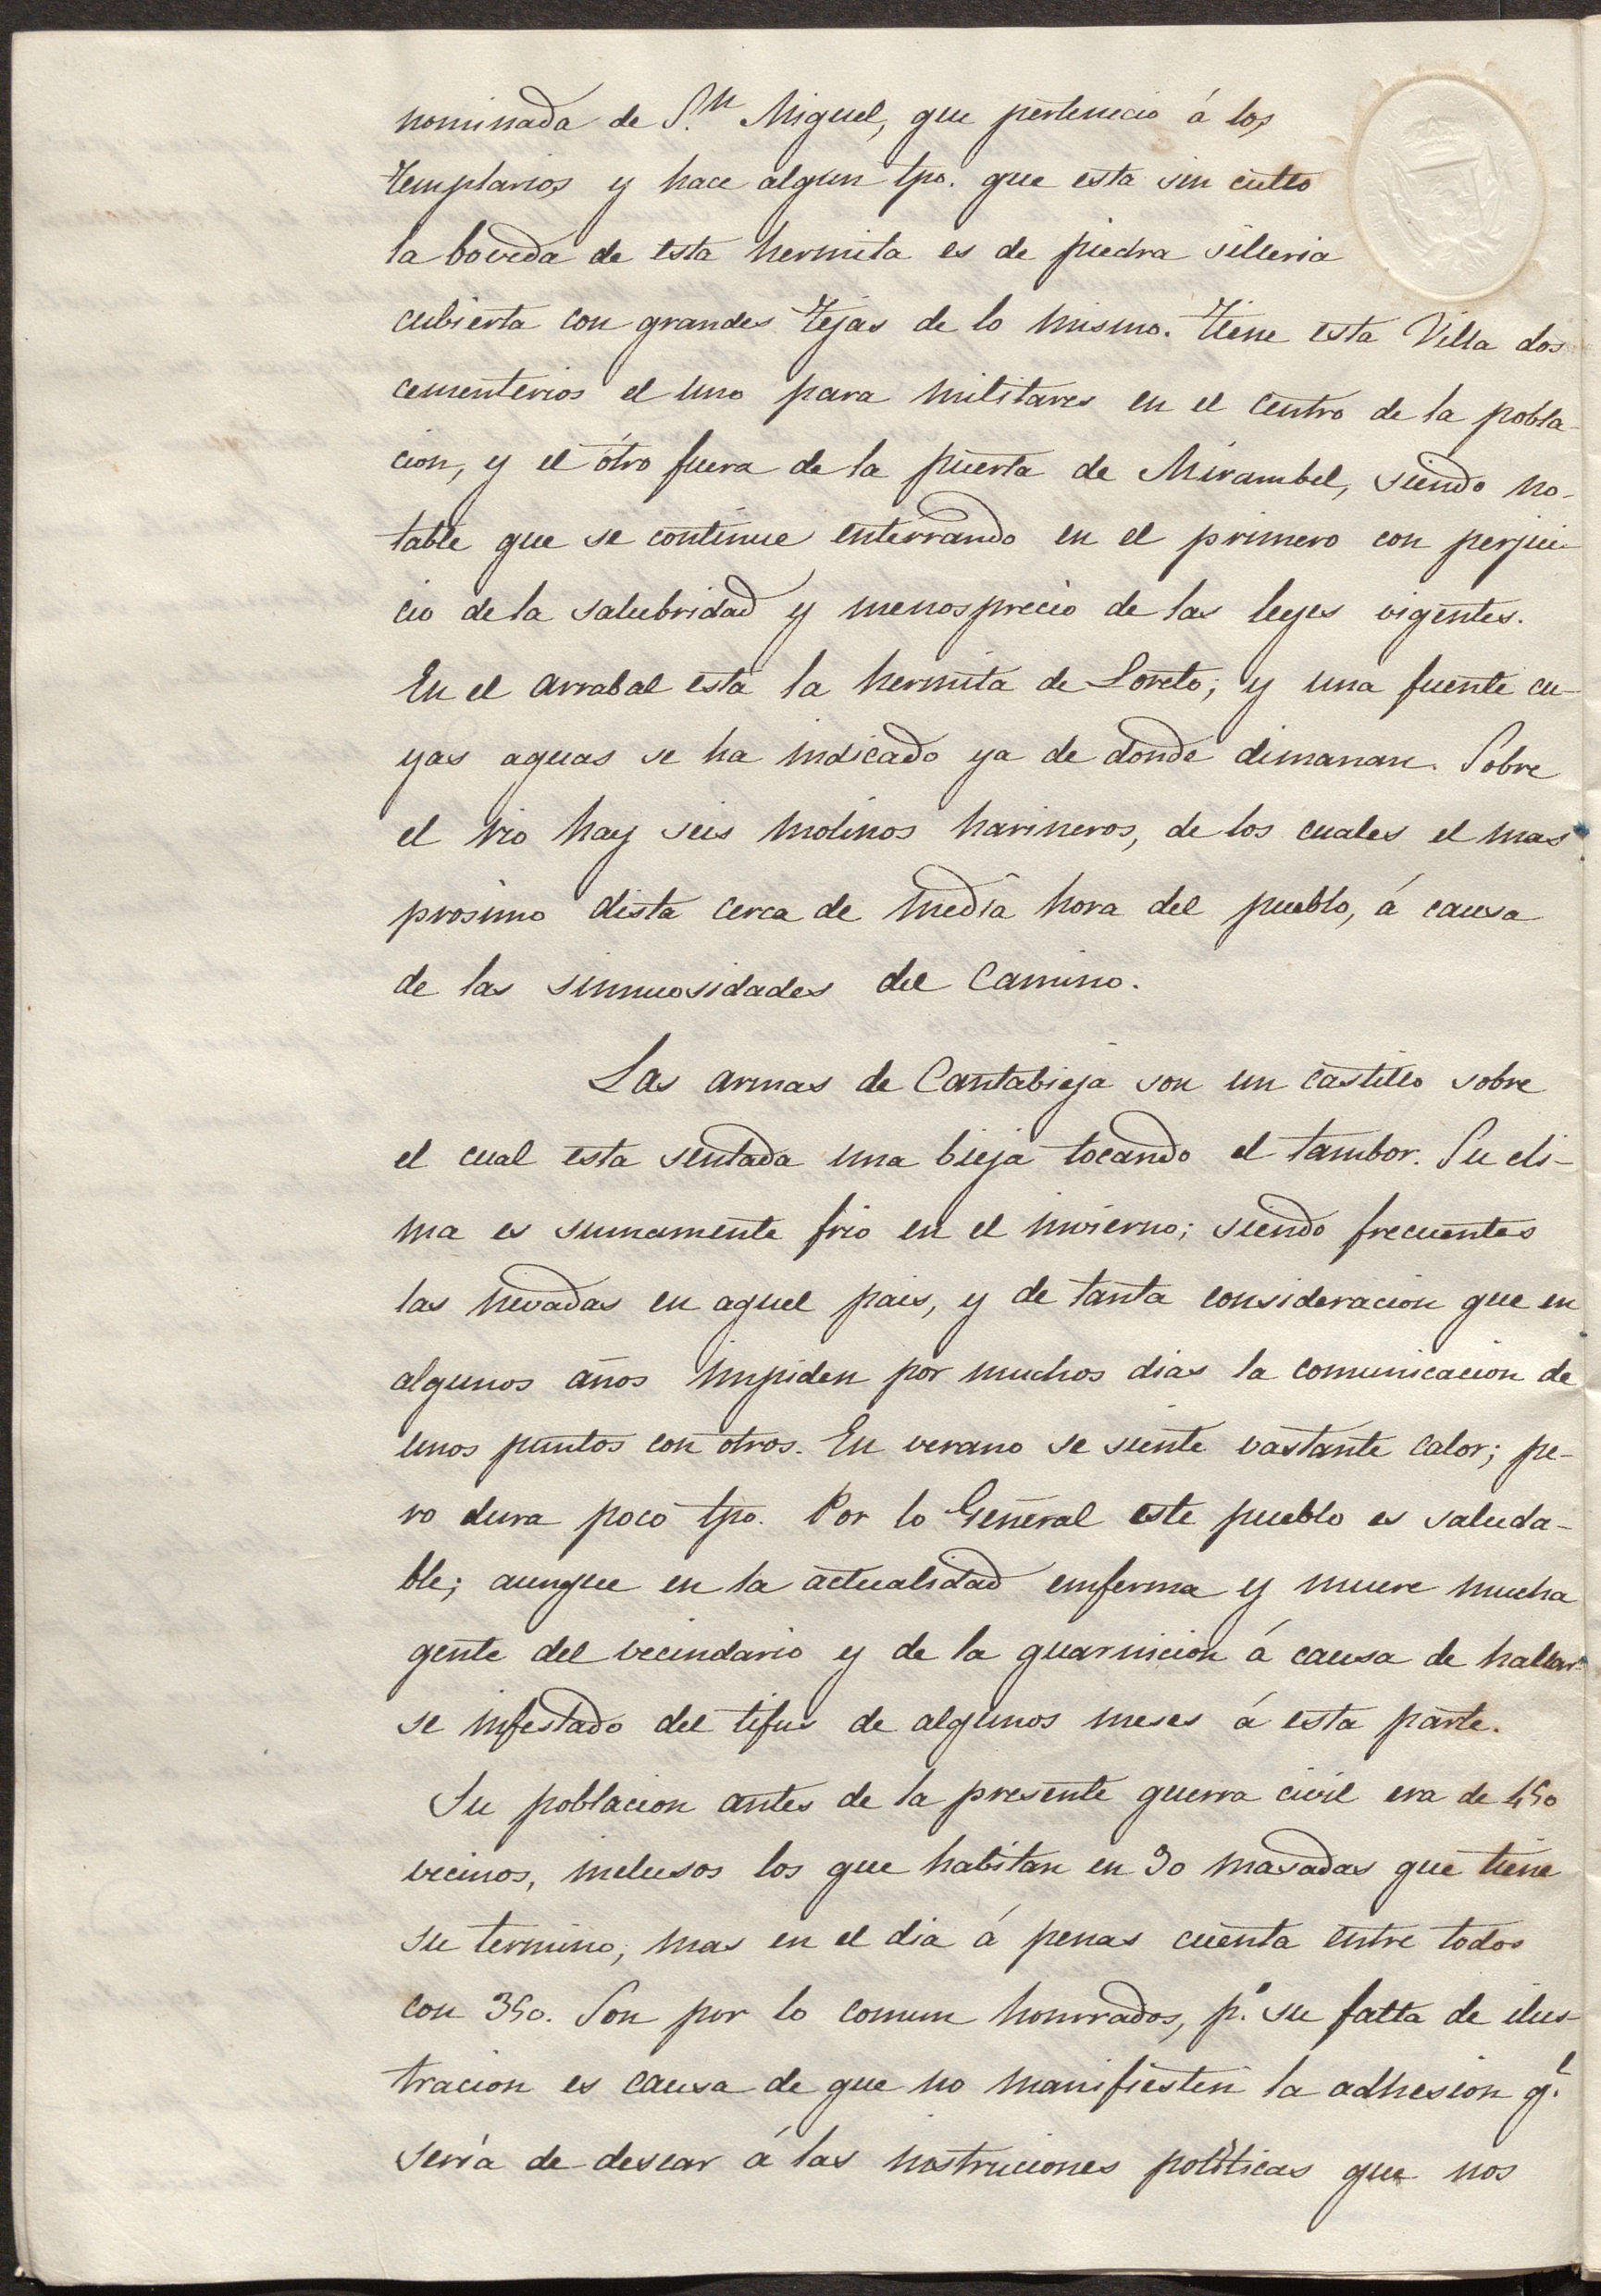 nominada de S.n Miguel, que pertenecio á los
templarios y hace algun tpo. que esta sin culto
la boveda de esta hermita es de piedra silleria
cubierta con grandes tejas de lo mismo. Tiene esta Villa dos
cementerios el uno para militares en el centro de la pobla-
cion, y el ótro fuera de la puerta de Mirambel, siendo no-
table que se continue enterrando en el primero con perjui-
cio de la salubridad y menosprecio de las leyes vigentes.
En el arrabal esta la hermita de Loreto; y una fuente cu-
yas aguas se ha indicado ya de donde dimanan. Sobre
el rio hay seis molinos harineros, de los cuales el mas
prosimo dista cerca de media hora del pueblo, á causa
de las sinnuosidades del Camino.
Las armas de Cantabieja son un castillo sobre
el cual esta sentada una bieja tocando el tambor. Su cli-
ma es sumamente frio en el invierno; siendo frecuentes
las nevadas en aquel pais, y de tanta consideracion que en
algunos años impiden por muchos dias la comunicacion de
unos puntos con otros. En verano se siente vastante calor; pe-
ro dura poco tpo. Por lo General este pueblo es saluda-
ble; aunque en la actualidad emferma y muere mucha
gente del vecindario y de la guarnicion á causa de hallar-
se infestado del tifus de algunos meses á esta parte.
Su poblacion antes de la presente guerra civil era de 450
vecinos, inclusos los que habitan en 90 masadas que tiene
su termino; mas en el dia á penas cuenta entre todos
con 350. Son por lo comun honrrados, p.o su falta de ilus-
tracion es causa de que no manifiesten la adhesion q.e
sería de desear á las instruciones politicas que nos